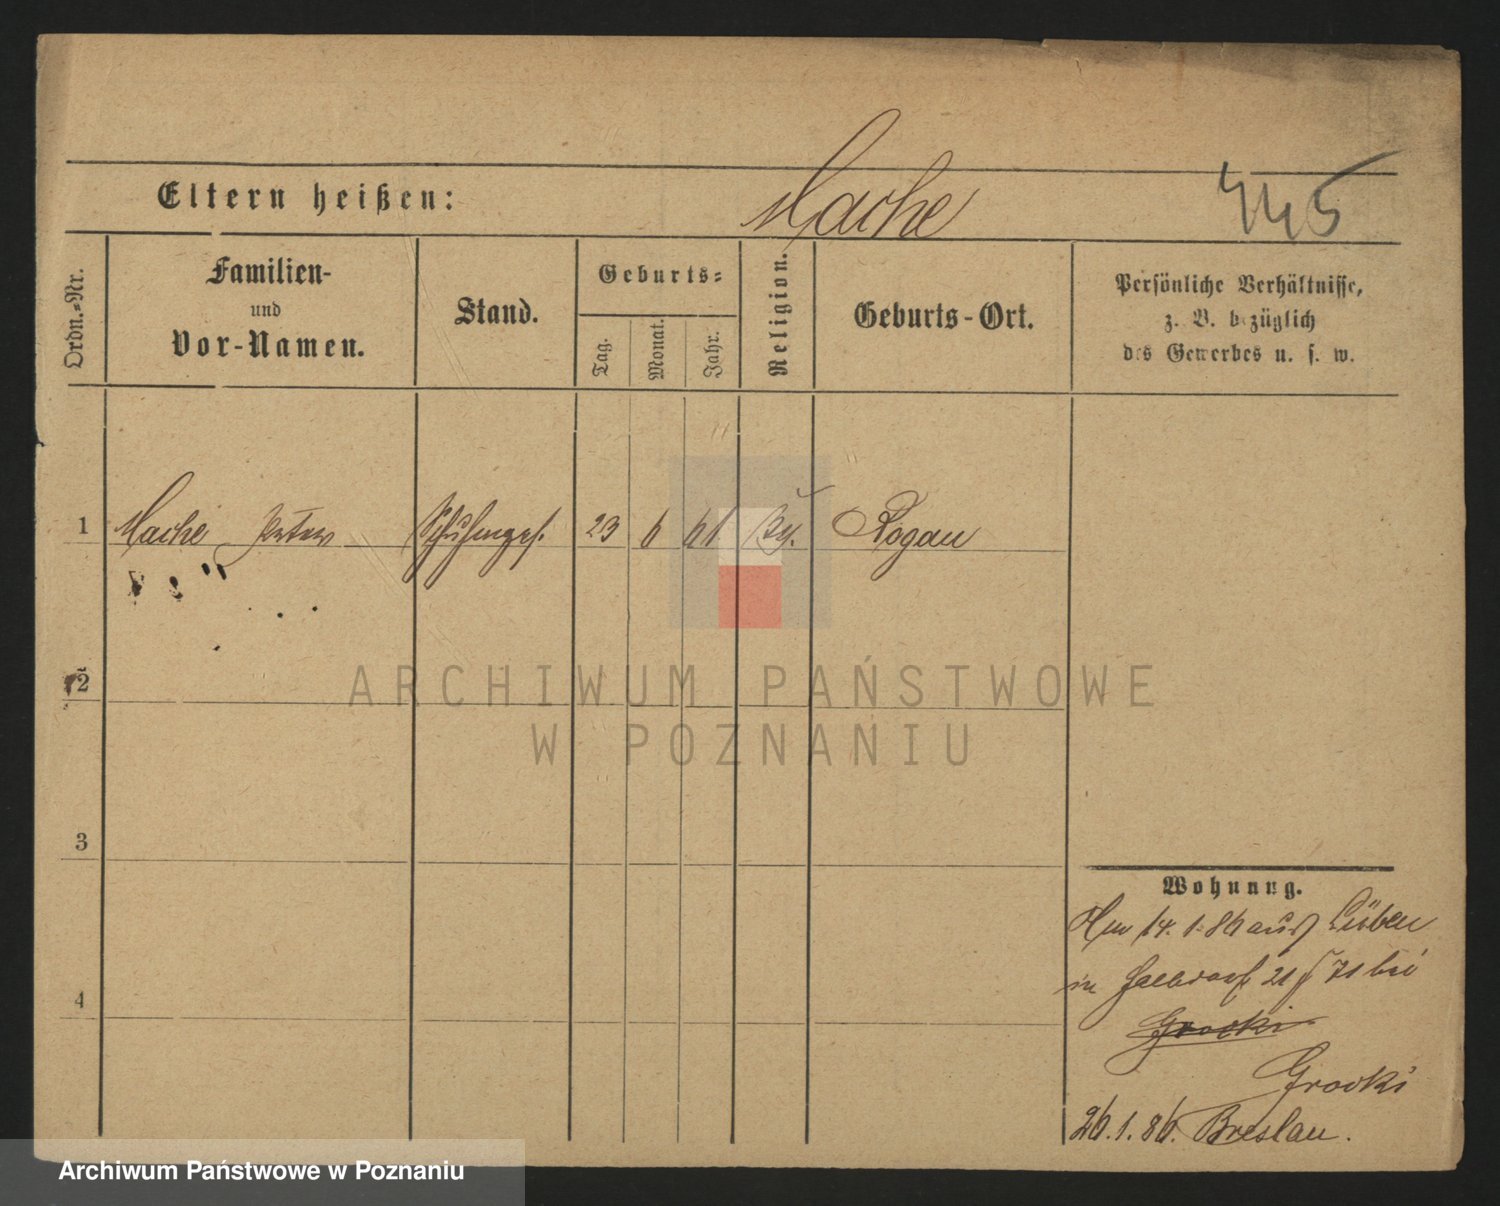 Eltern heißen: Mache 445
Ordn.-Nr.
Familien-
und
Vor-Namen.
Stand.
Geburts-
Tag.
Monat.
Jahr.
Religion.
Geburts-Ort.
Persönliche Verhältnisse,
z. B. bezüglich
des Gewerbes u. s. w.
1 Mache Peter 23 6 61 Rogau
2
3
4
Wohnung.
14. 1. 86 aus Lüben
in Halbdorf 21 71 bei
Grocki
Grocki
26. 1. 86. Breslau.
ARCHIWUM PAŃSTWOWE
W POZNANIU
Archiwum Państwowe w Poznaniu